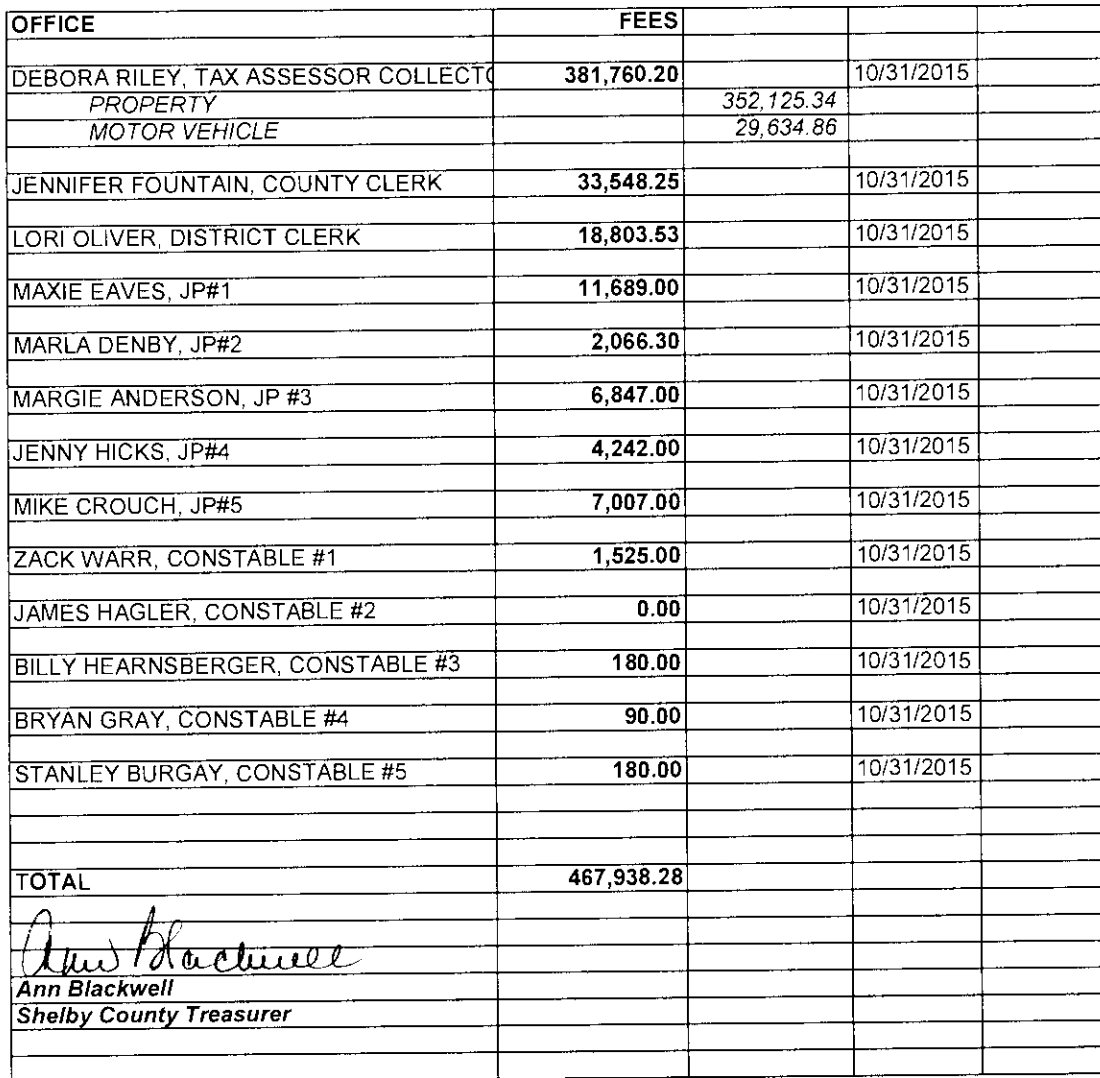 OFFICE FEES
DEBORA RILEY, TAX ASSESSOR COLLECTO 381,760.20 10/31/2015
PROPERTY 352,125.34
MOTOR VEHICLE 29,634.86
JENNIFER FOUNTAIN, COUNTY CLERK 33,548.25 10/31/2015
LORI OLIVER, DISTRICT CLERK 18,803.53 10/31/2015
MAXIE EAVES, JP#1 11,689.00 10/31/2015
MARLA DENBY, JP#2 2,066.30 10/31/2015
MARGIE ANDERSON, JP #3 6,847.00 10/31/2015
JENNY HICKS, JP#4 4,242.00 10/31/2015
MIKE CROUCH, JP#5 7,007.00 10/31/2015
ZACK WARR, CONSTABLE #1 1,525.00 10/31/2015
JAMES HAGLER, CONSTABLE #2 0.00 10/31/2015
BILLY HEARNSBERGER, CONSTABLE #3 180.00 10/31/2015
BRYAN GRAY, CONSTABLE #4 90.00 10/31/2015
STANLEY BURGAY, CONSTABLE #5 180.00 10/31/2015
TOTAL 467,938.28
Ann Blackwell
Ann Blackwell
Shelby County Treasurer